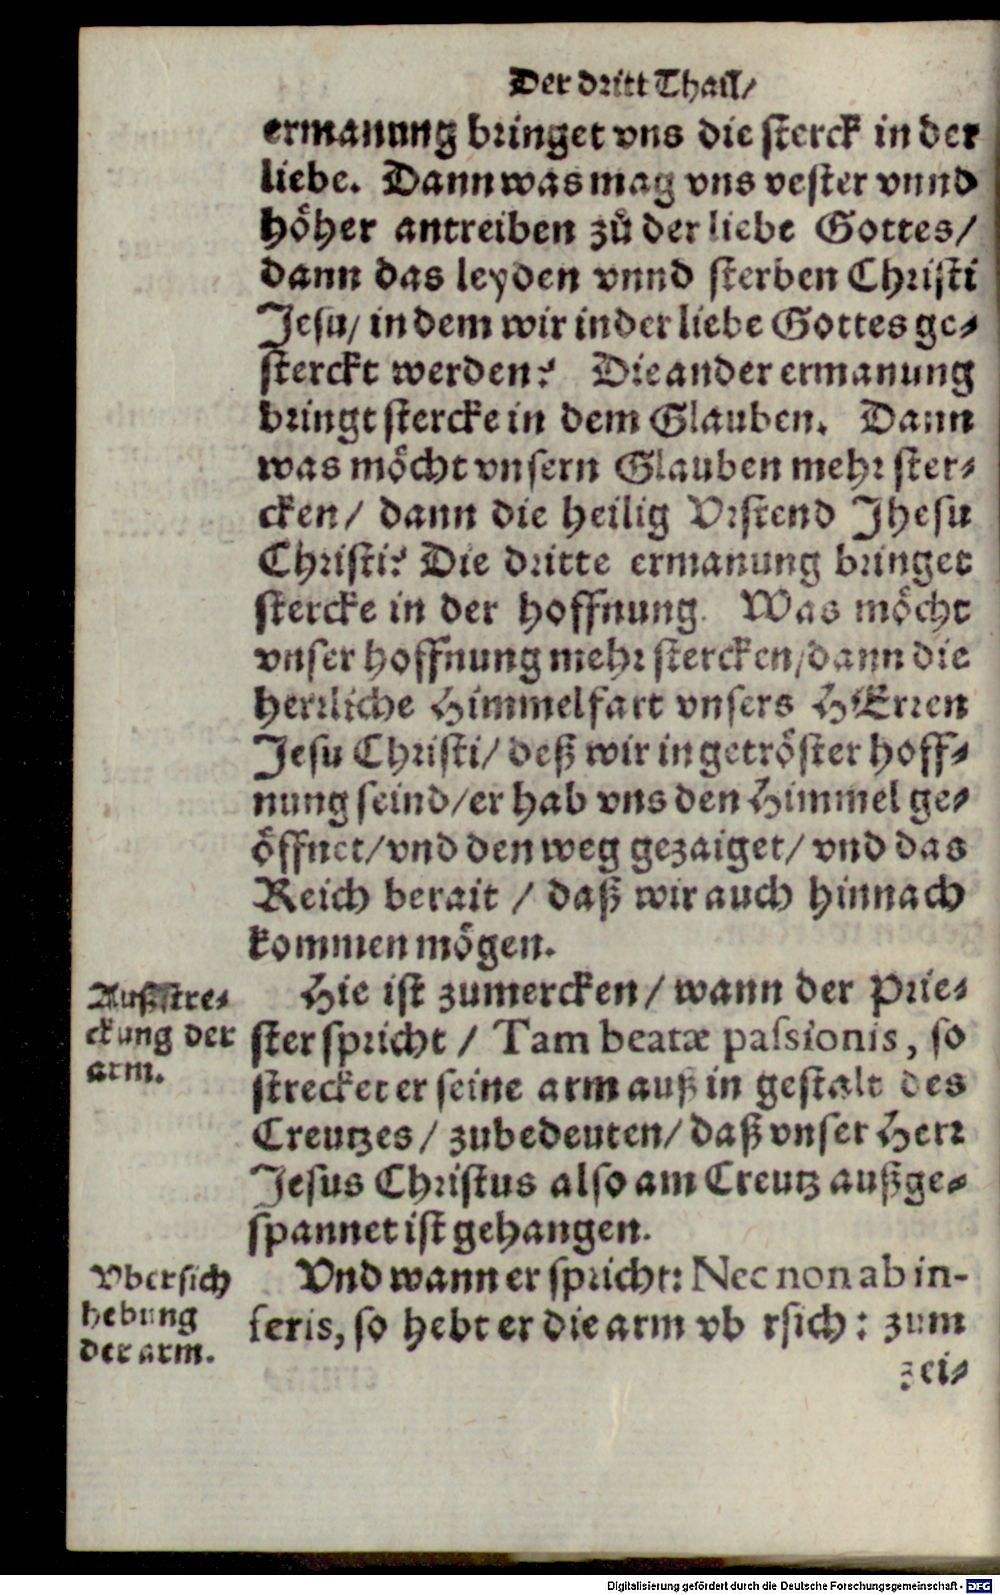 Der dritt Thail/
ermanung bringet vns die sterck in der
liebe. Dann was mag vns vester vnnd
höher antreiben zů der liebe Gottes/
dann das leyden vnnd sterben Christi
Jesu/ in dem wir in der liebe Gottes ge⸗
sterckt werden? Die ander ermanung
bringt stercke in dem Glauben. Dann
was möcht vnsern Glauben mehr ster⸗
cken/ dann die heilig Vrstend Jhesu
Christi? Die dritte ermanung bringet
stercke in der hoffnung. Was möcht
vnser hoffnung mehr stercken/dann die
herrliche Himmelfart vnsers HErren
Jesu Christi/ deß wir in getröster hoff⸗
nung seind/er hab vns den Himmel ge⸗
öffnet/vnd den weg gezaiget/ vnd das
Reich berait / daß wir auch hinnach
kommen mögen.
Hie ist zumercken/ wann der Prie⸗
Außstre⸗
ckung der
arm.
ster spricht / Tam beatæ passionis, so
strecket er seine arm auß in gestalt des
Creutzes/ zubedeuten/ daß vnser Herr
Jesus Christus also am Creutz außge⸗
spannet ist gehangen.
Vbersich
hebung
der arm.
Vnd wann er spricht: Nec non ab in-
feris, so hebt er die arm vb rsich: zum
zei⸗
Digitalisierung gefördert durch die Deutsche Forschungsgemeinschaft - DFG